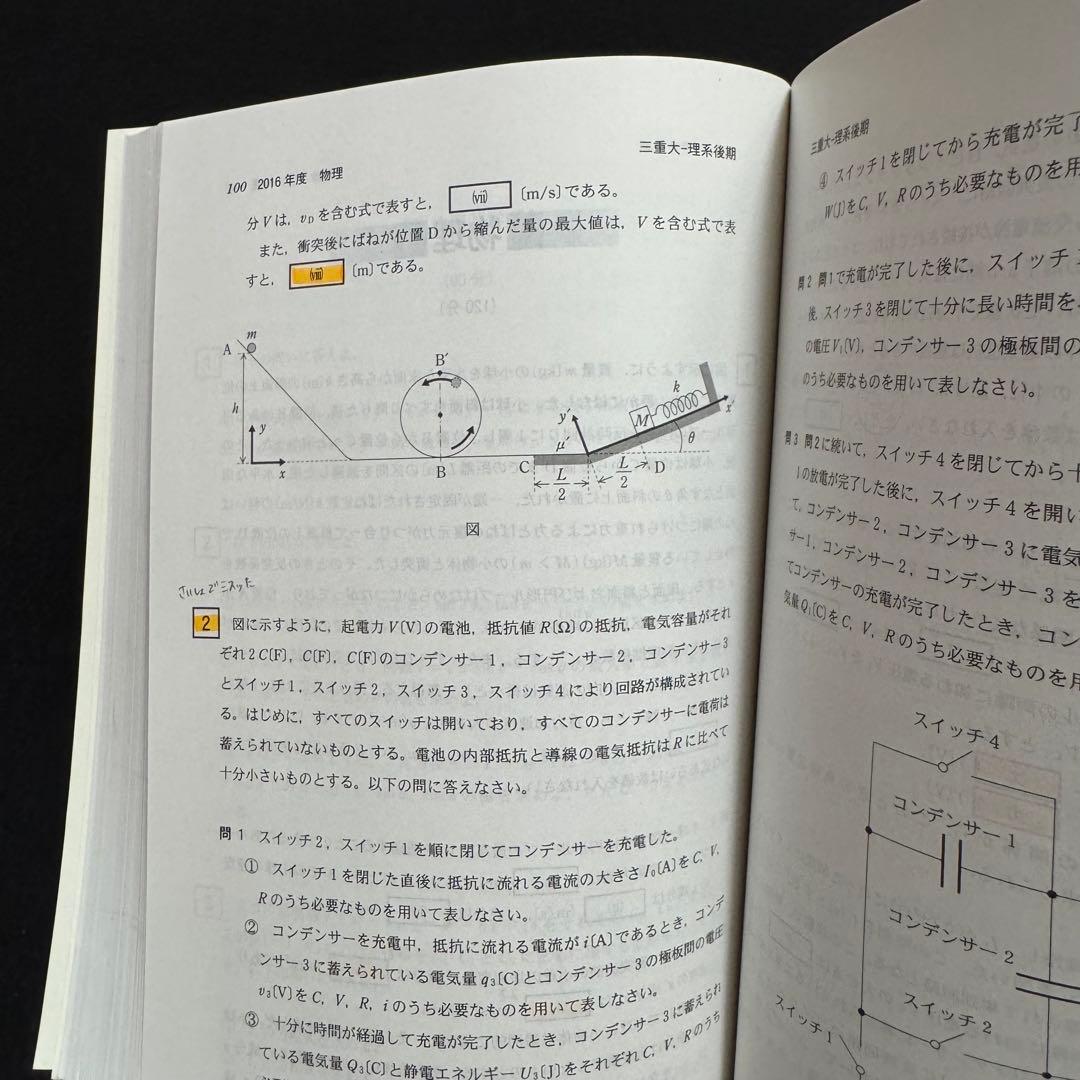 三重大-理系後期
100 2016年度 物理
分Vは，vDを含む式で表すと，(vii)〔m/s〕である。
また，衝突後にばねが位置Dから縮んだ量の最大値は，Vを含む式で表
すと，(viii)〔m〕である。
A
m
h
y
x
B′
B
y′
μ′
C
L/2
L/2
D
M
k
x′
θ
図
2 図に示すように，起電力V〔V〕の電池，抵抗値R〔Ω〕の抵抗，電気容量がそれ
ぞれ2C〔F〕，C〔F〕，C〔F〕のコンデンサー1，コンデンサー2，コンデンサー3
とスイッチ1，スイッチ2，スイッチ3，スイッチ4により回路が構成されてい
る。はじめに，すべてのスイッチは開いており，すべてのコンデンサーに電荷は
蓄えられていないものとする。電池の内部抵抗と導線の電気抵抗はRに比べて
十分小さいものとする。以下の問に答えなさい。
問1 スイッチ2，スイッチ1を順に閉じてコンデンサーを充電した。
① スイッチ1を閉じた直後に抵抗に流れる電流の大きさI0〔A〕をC，V，
Rのうち必要なものを用いて表しなさい。
② コンデンサーを充電中，抵抗に流れる電流がi〔A〕であるとき，コンデ
ンサー3に蓄えられている電気量q3〔C〕とコンデンサー3の極板間の電圧
v3〔V〕をC，V，R，iのうち必要なものを用いて表しなさい。
③ 十分に時間が経過して充電が完了したとき，コンデンサー3に蓄えられ
ている電気量Q3〔C〕と静電エネルギーU3〔J〕をそれぞれC，V，Rのうち
三重大-理系後期
④ スイッチ1を閉じてから充電が完了
W〔J〕をC，V，Rのうち必要なものを用
問2 問1で充電が完了した後に，スイッチ
後，スイッチ3を閉じて十分に長い時間を
の電圧V1〔V〕，コンデンサー3の極板間の
のうち必要なものを用いて表しなさい。
問3 問2に続いて，スイッチ4を閉じてから十
1の放電が完了した後に，スイッチ4を開い
て，コンデンサー2，コンデンサー3に電気
サー1，コンデンサー2，コンデンサー3を
てコンデンサーの充電が完了したとき，コン
気量Q1〔C〕をC，V，Rのうち必要なものを用
スイッチ4
コンデンサー1
コンデンサー2
スイッチ2
スイッチ1